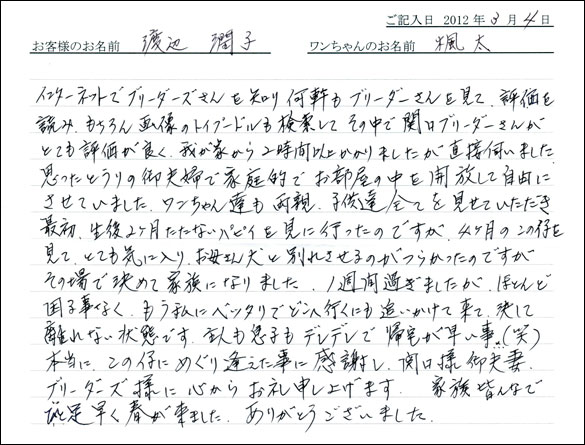 ご記入日 2012年3月4日
お客様のお名前 渡辺 潤子 ワンちゃんのお名前 楓太
インターネットでブリーダーズさんを知り何軒もブリーダーさんを見て、評価を
読み、もちろん画像のトイプードルも検索してその中で関口ブリーダーさんが
とても評価が良く、我が家から2時間以上かかりましたが直接伺いました。
思ったとうりの御夫婦で家庭的でお部屋の中を開放して自由に
させていました。ワンちゃん達も両親、子供達全てを見せていただき
最初、生後2ヶ月たたないパピィを見に行ったのですが、4ヶ月のこの仔を
見て、とても気に入り、お母さん犬と別れさせるのがつらかったのですが
その場で決めて家族になりました。1週間過ぎましたが、ほとんど
困る事なく、もう私にベッタリでどこへ行くにも追いかけて来て、決して
離れない状態です。主人も息子もデレデレで帰宅が早い事。(笑)
本当に、この仔にめぐり逢えた事に感謝し、関口様御夫妻、
ブリーダーズ様に心からお礼申し上げます。 家族皆んなで
一足早く春が来ました。ありがとうございました。